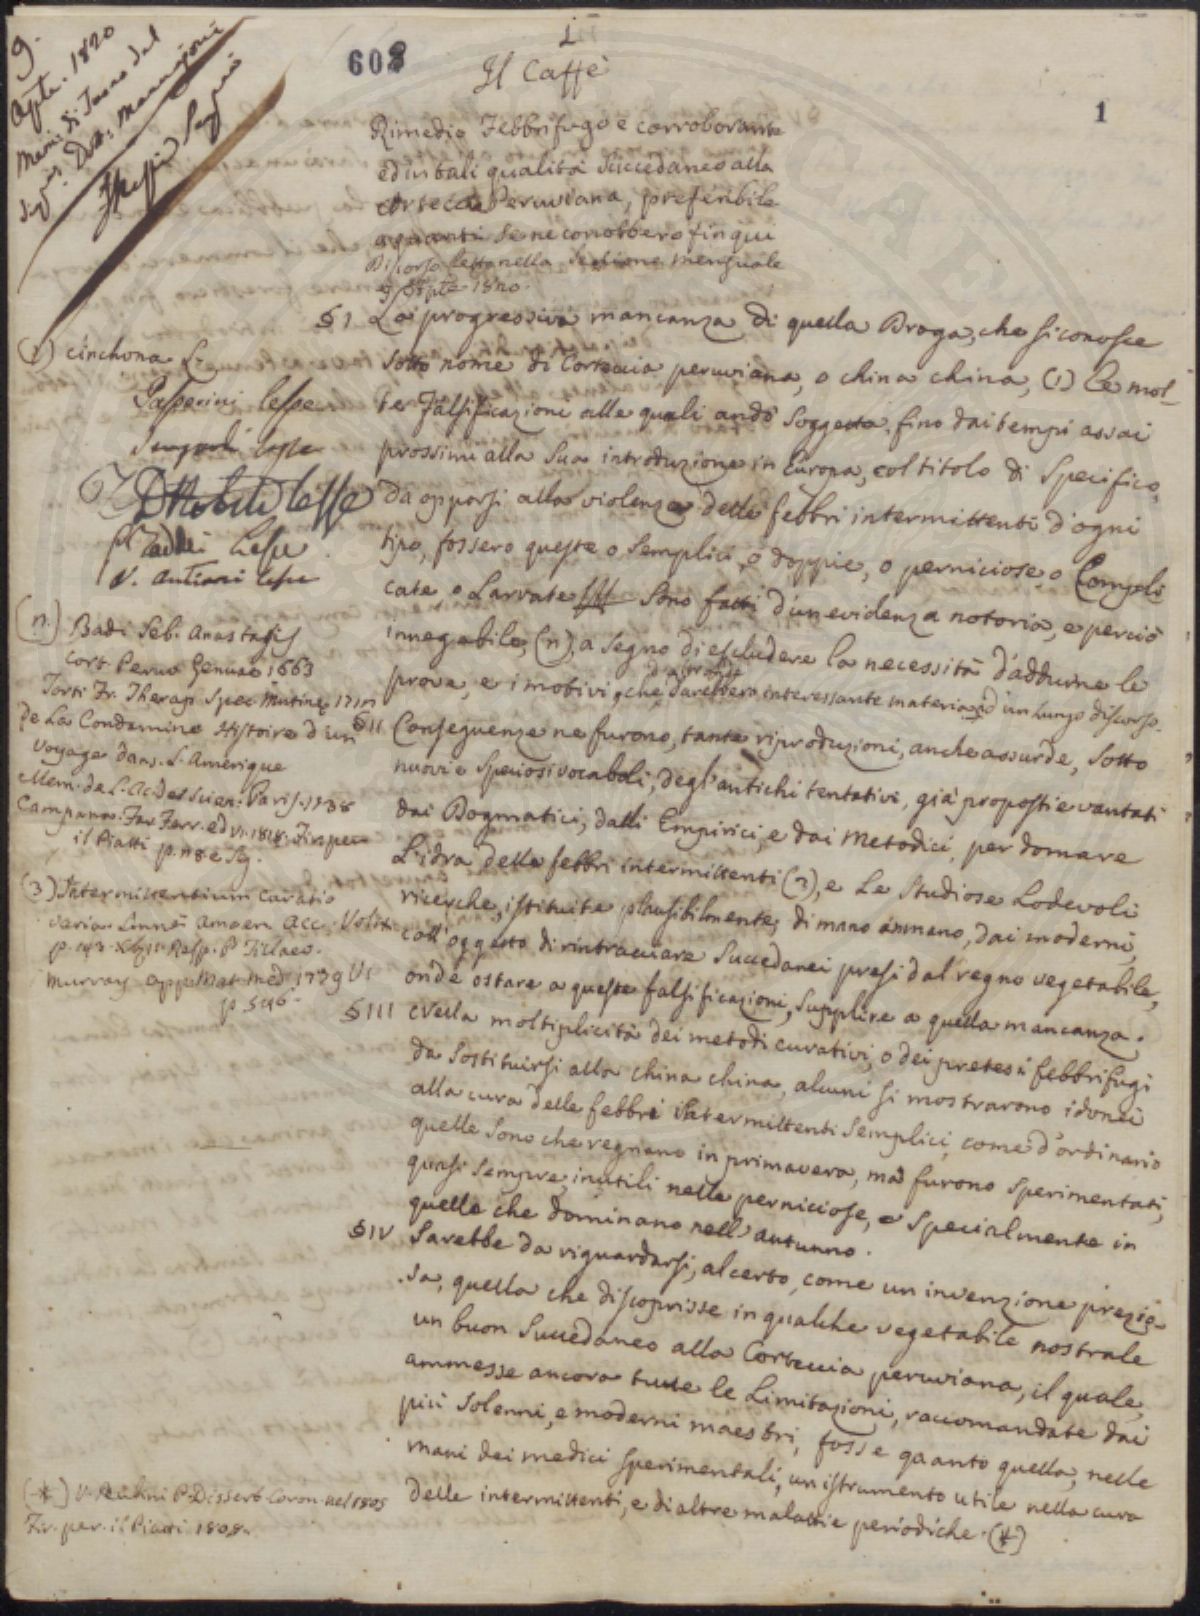 9.
Apte. 1820
608
1
1
Il Caffè
Rimedio Febbrifugo e corroborante
ed in tali qualità Succedaneo alla
Corteccia Peruviana, preferibile
a quanti se ne conobbero fin qui
Discorso letto nella Sessione mensuale
9 Apte 1820.
§ I La progressiva mancanza di quella Droga, che si conosce
sotto nome di Corteccia peruviana, o china china, (1) le mol-
te falsificazioni alle quali andò soggetta, fino dai tempi assai
prossimi alla sua introduzione in Europa, col titolo di Specifico,
da opporsi alla violenza delle febbri intermittenti d'ogni
tipo, fossero queste o semplici, o doppie, o perniciose, o Compli
cate, o Larvate Sono fatti d'un evidenza notoria, e perciò
innegabile, (n) a segno di escludere la necessità d'addurne le
prove, e i motivi, che darebbero interessante materia ad un lungo discorso.
§ II Conseguenze ne furono, tante riproduzioni, anche assurde, sotto
nuovi e speciosi vocaboli, degl'antichi tentativi, già proposti e vantati
dai Dogmatici, dalli Empirici, e dai Metodici, per domare
L'idra delle febbri intermittenti (3), e Le Studiose Lodevoli
ricerche, istituite plausibilmente, di mano in mano, dai moderni,
coll'oggetto di rintracciare Succedanei presi dal regno vegetabile,
onde ostare a queste falsificazioni, supplire a quella mancanza.
§ III Nella moltiplicità dei metodi curativi, o dei pretesi febbrifugi
da sostituirsi alla china china, alcuni si mostrarono idonei
alla cura delle febbri intermittenti semplici, come d'ordinario
quelle sono che regnano in primavera, ma furono sperimentati,
quasi sempre, inutili nelle perniciose, e specialmente in
quelle che dominano nell'autunno.
§ IV Sarebbe da riguardarsi, al certo, come un invenzione prezio-
sa, quella che discoprisse in qualche vegetabile nostrale
un buon Succedaneo alla Corteccia peruviana, il quale,
ammesse ancora tutte le Limitazioni, raccomandate dai
più solenni, e moderni maestri, fosse quanto quella, nelle
mani dei medici sperimentali, un istrumento utile nella cura
delle intermittenti, e di altre malattie periodiche. (*)
(1) Cinchona L.
Passerini lesse
lesse
lesse
Taddei lesse
V. Antiani lesse
(n.) Badi Seb. Anastasis
Cort. Peruv. Genuae 1663
Torti Fr. Therap. Spec. Mutinae
De La Condamine Histoire d'un
Voyage dans L'Amerique
Mem. de L'Ac. des Scien. Paris. 1738
Campana. Far. Ferr. ed VI. 1818. Firenze
il Piatti
(3) Intermittentium Curatio
varia. Linnei Amoen. Acc.
Resp. P.
Murray App. Mat. Med.
p. 546.
(*) Dissert. Coron. nel 1805
Fir. per il Piatti 1808.